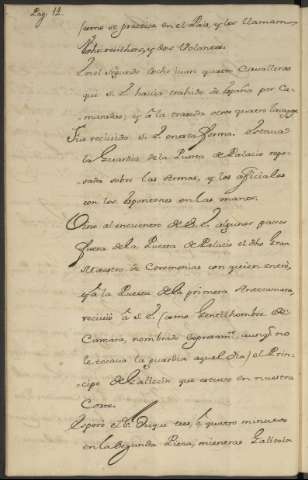 Pag. 12.
como se practica en el Pais, y los llamamos
y dos Volantes.
En el segundo coche iuan quatro Cavalleros
que S. E. havia trahido de España por Ca-
maradas; y à la trasera otros quatro lacayos
Fue recivido S. E. en esta forma. Estava
la Guardia de la Puerta de Palacio repo-
sada sobre las Armas, y los oficiales
con los Espontones en las manos.
Salio al encuentro de S. E. algunos passos
fuera de la Puerta de Palacio el dho Gran
Maestro de Ceremonias con quien entrò,
y à la Puerta de la primera Antecamara,
recivió à S. E. como Gentilhombre de
Camara, nombrado expresamte. aunq no
le tocava la guardia aquel dia) el Prin-
cipe de que estuvo en nuestra
Corte.
Esperò el Sr. Duque tres, ò quatro minutos
en la segunda Pieza, mientras